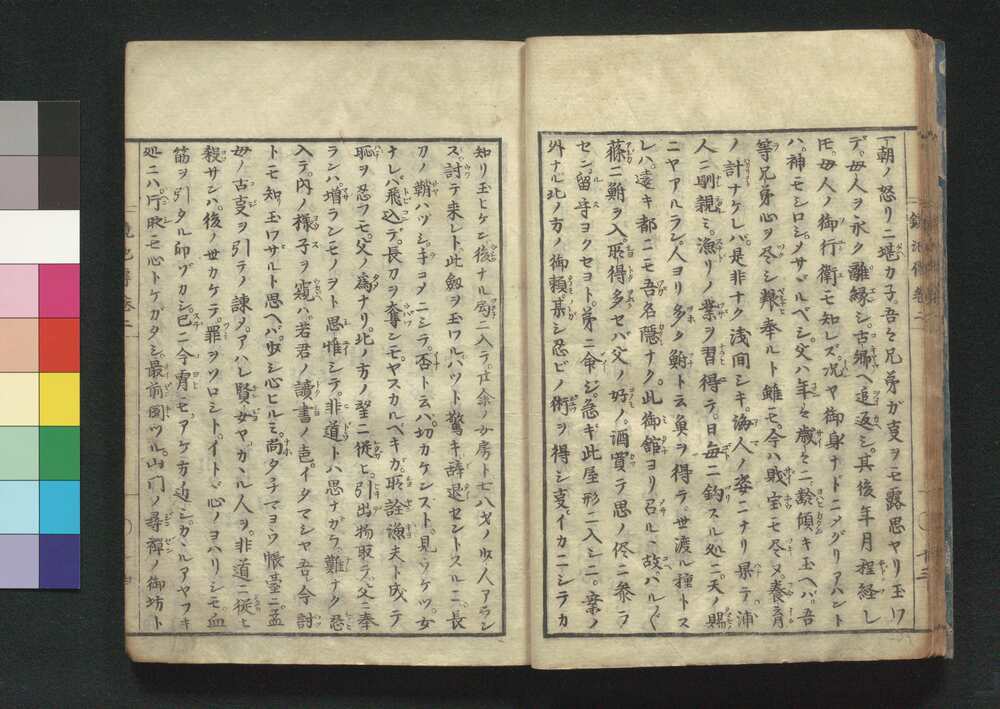 一朝ノ怒リニ堪カ子。吾々兄弟ガ叓ヲモ露思ヤリ玉ワ
デ。母人ヲ永ク離縁シ。古郷ヘ追返シ。其後年月程経シ
𪜈。母人ノ御行衛モ知レズ。况ヤ御身ナドニメグリアハント
ハ。神モシロシメサヾルベシ。父ハ年々歳々ニ齢傾キ玉ヘバ。吾
等兄弟心ヲ尽シ。養奉ルト雖モ。今ハ財宝モ尽メ養育
ノ計ナケレバ。是非ナク浅間シキ。漁人ノ姿ニナリ果テ。浦
人ニ馴親ミ。漁リノ業ヲ習得テ。日毎ニ釣スル処ニ。天ノ賜
ニヤアルラン。人ヨリ多ク鮒ト云魚ヲ得テ。世渡ル種トス
レハ。遠キ都ニモ吾名隠ナク。此御館ヨリ召ル、故。ハル〴〵
篠ニ鮒ヲ入。取得多セバ父ノ好ノ。酒買テ思ノ侭ニ参ラ
セン。留守ヨクセヨト。弟ニ命ジ。急ギ此屋形ニ入シニ。案ノ
外ナル北ノ方ノ御頼。某シ忍ビノ術ヲ得シ叓。イカニシラカ
知リ玉ヒケン。後ナル局ニ入テ。其余ノ女房ト七八才ノ少人アラン
ス。討テ来ント。此釼ヲ玉ワル。ハット驚キ辞退セントスルニ。長
刀ノ鞘ハヅシ。手コメニシテ。否ト云バ。切カケンスト。見ヘケツ。女
ナレバ。飛込デ。長刀ヲ奪シモ。ヤスカルベキガ。所詮漁夫ト成テ
恥ヲ忍フモ。父ノ為ナリ。此ノ方ノ望ニ従ヒ。引出物取テ。父ニ奉
ランハ。増ランモノヲト思惟シテ。非道トハ思ナガラ。難ナク忍
入テ。内ノ様子ヲ窺ハ。若君ノ讀書ノ声。イタマシヤ吾今討
トモ知玉ワサルト思ヘバ。少シ心ヒルミ。尚タチマヨウ帳臺ニ。孟
母ノ古叓ヲ引テノ諫メ。アハレ賢女ヤ。カヽル人ヲ。非道ニ従ヒ
殺サンハ。後ノ世カケテ。罪ヲソロシト。イトヾ心ノヨハリシモ。血
筋ヲ引タル印ゾカシ。已ニ今宵モ。アケ方近シ。カヽルアヤフキ
処ニハ。片時モ心トケガタシ。最前圖ツル。山門ノ尋禅ノ御坊ト